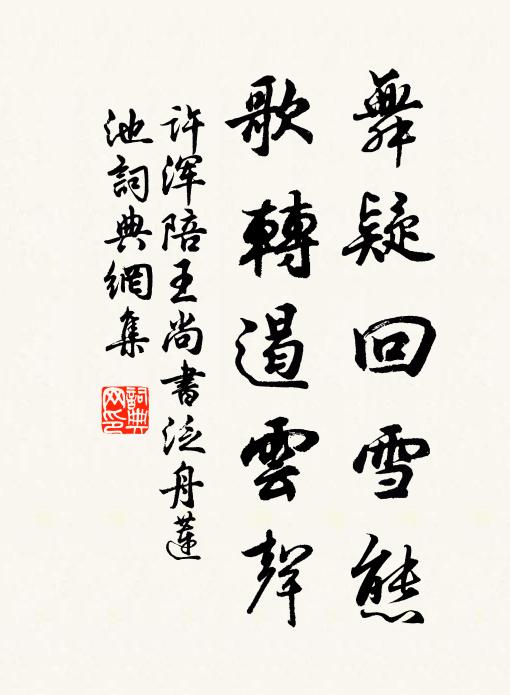 舞疑回雪態
歌轉遏雲聲
许浑陪王尚書泛舟蓮
池詞典網集
詞典网印